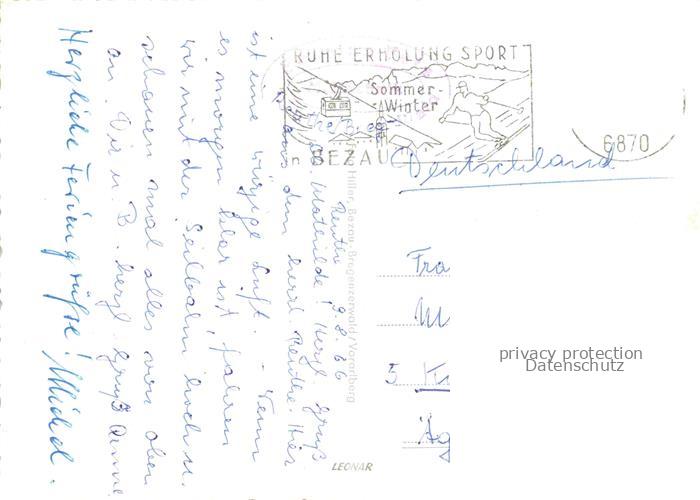 RUHE ERHOLUNG SPORT
Sommer-
Winter
BEZAU
6870
Deutschland
Reutte 9.8.66
Mathilde! Herzl. Grüß
aus dem herrl. Reutte. Hier
ist eine würzige Luft. - Wenn
es morgen klar ist, fahren
wir mit der Seilbahn hoch u.
schauen mal alles von oben
an. Dir u. B. herzl. Grüß Anne
Herzliche Feriengrüße! Michel.
Hiller, Bezau-Bregenzerwald/Vorarlberg
LEONAR
Fra
M
5 Kö
Äg
privacy protection
Datenschutz